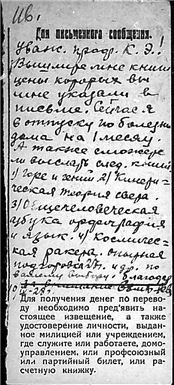 Для письменного сообщения.
Уваж. проф. К. Э!
Вышлите мне книги
цены которых вы
мне указали в
письме. Сейчас я
в отпуску по болезни
дома на 1 месяц.
А также сможете
ли выслать след. книги
1) Горе и гений 2) Кинети-
ческая теория света.
3) Общечеловеческая
азбука орфография
и язык. 4) Космичес-
кая ракета. опытная
подготовка. и др. по
вашему выбору.
Для получения денег по перево-
ду необходимо пред'явить на-
стоящее извещение, а также
удостоверение личности, выдан-
ное милицией или учреждением,
где служите или работаете, домо-
управлением, или профсоюзный
или партийный билет, или рас-
счетную книжку.